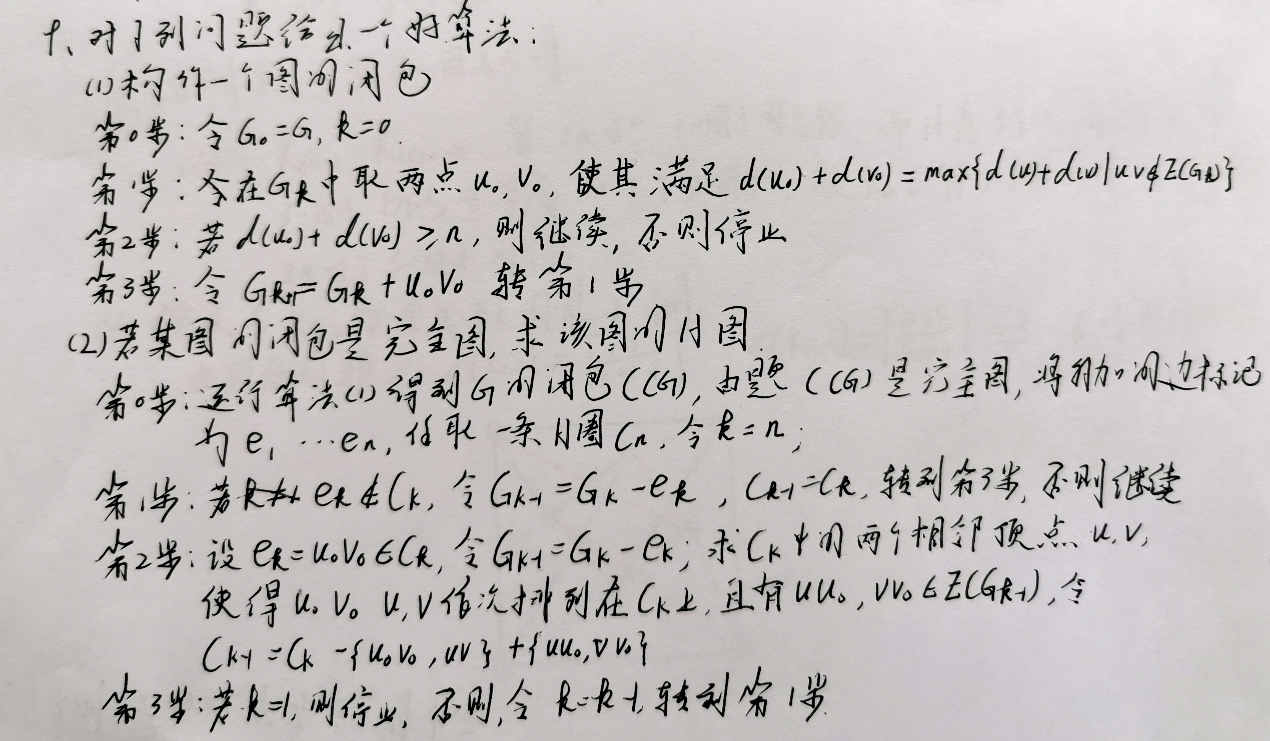 9、对下列问题给出一个好算法:
(1)构作一个图的闭包
第0步:令G₀=G, k=0.
第1步:令在Gk中取两点u₀,v₀,使其满足d(u₀)+d(v₀)=max{d(u)+d(v)|uv∉E(Gk)}
第2步:若d(u₀)+d(v₀)≥n,则继续,否则停止
第3步:令Gk+1=Gk+u₀v₀ 转第1步
(2)若某图的闭包是完全图,求该图的H圈
第0步:运行算法(1)得到G的闭包C(G),由题C(G)是完全图,将所加的边标记
为e₁…en,任取一条H圈Cn,令k=n;
第1步:若ek∉Ck,令Gk-1=Gk-ek,Ck-1=Ck,转到第3步,否则继续
第2步:设ek=u₀v₀∈Ck,令Gk-1=Gk-ek;求Ck中的两个相邻顶点u,v,
使得u₀ v₀ u,v依次排列在Ck上,且有uu₀,vv₀∈E(Gk-1),令
Ck-1=Ck-{u₀v₀,uv}+{uu₀,vv₀}
第3步:若k=1,则停止,否则,令k=k-1,转到第1步.